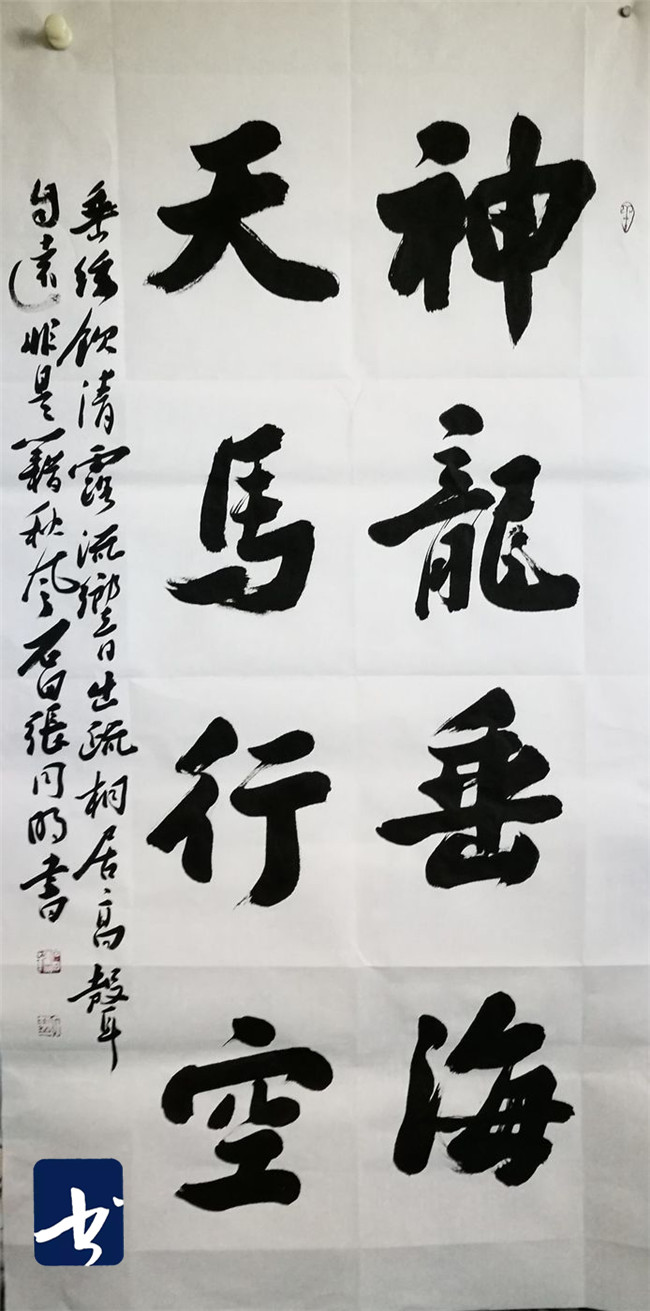 神龍垂海
天馬行空
垂緌飲清露流響出疏桐居高聲
自遠非是藉秋風石田張同明書
书